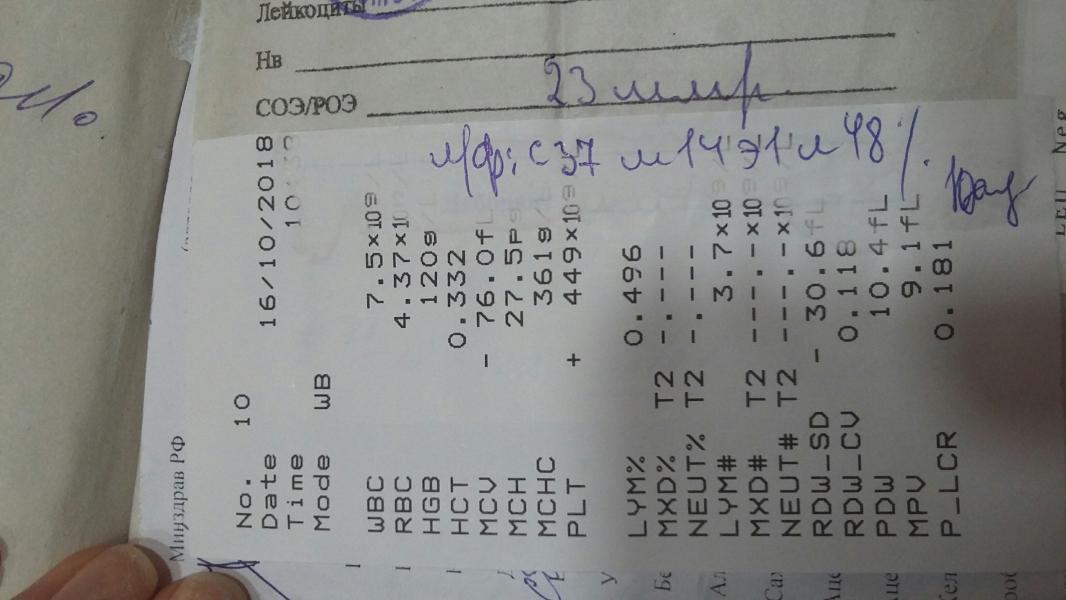 Лейкоциты
Нв
СОЭ/РОЭ 23 мм/
л/ф: с 37 м 14 э1 л 48 %
No. 10
Date 16/10/2018
Time 10:33
Mode WB
WBC 7.5×109
RBC 4.37×10
HGB 120g/L
HCT 0.332
MCV - 76.0fL
MCH 27.5pg
MCHC 361g/L
PLT + 449×109
LYM% 0.496
MXD% T2 -.---
NEUT% T2 -.---
LYM# 3.7×109
MXD# T2 ---.-×109
NEUT# T2 ---.-×109
RDW_SD - 30.6fL
RDW_CV 0.118
PDW 10.4fL
MPV 9.1fL
P_LCR 0.181
Минздрав РФ
Neg